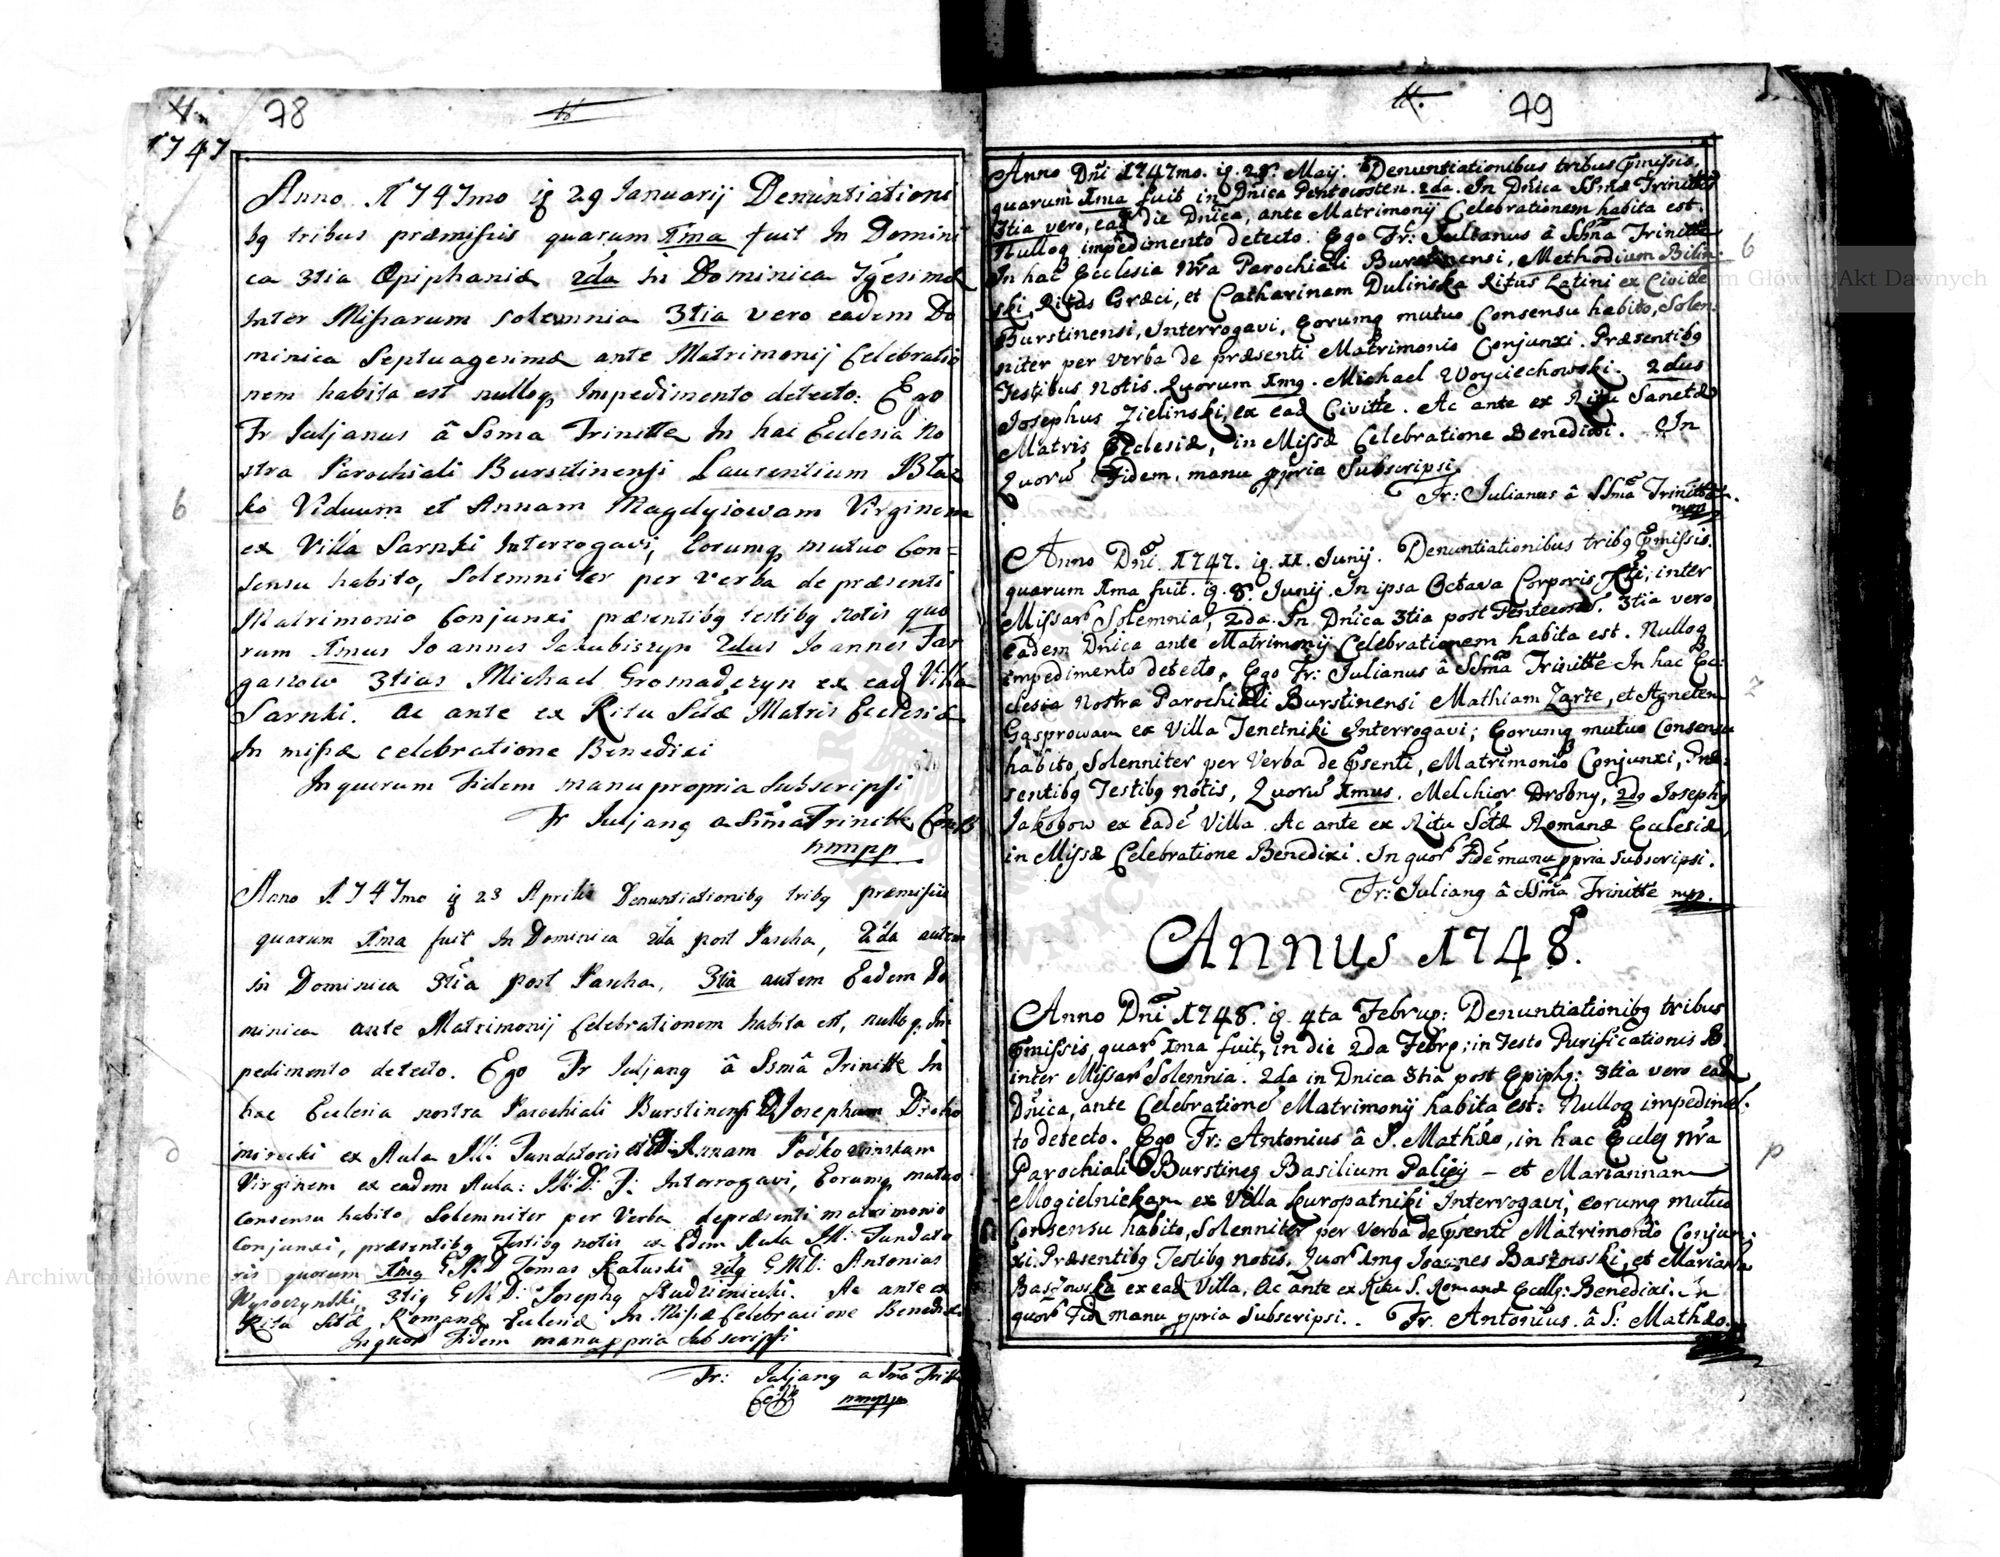 78
1747
Anno 1747mo ig 29 Januarij Denuntiationi
bg tribus præmissis quarum Ima fuit In Domini
ca 3tia Epiphaniæ 2da in Dominica
Inter Missarum solemnia 3tia vero eadem Do
minica Septuagesimæ ante Matrimonij Celebratio
nem habita est nulloq Impedimento detecto: Ego
Fr Juljanus â Ssma Trinitte In hac Ecclesia No
stra Parochiali Bursztinensi Laurentium Blaz
ko Viduum et Annam Magdyiowam Virginem
ex Villa Sarnki Interrogavi, Eorumq mutuo Con=
sensu habito, Solemniter per verba de præsenti
Matrimonio Conjunxi præsentibg testibg notis quo
rum Imus Joannes Jakubiszyn 2dus Joannes Tar
gaszow 3tius Michael Gromadczyn ex ead Villa
Sarnki. Ac ante ex Ritu Sctæ Matris Ecclesiæ
In missæ celebratione Benedixi
In quorum Fidem manu propria Subscripsi
Fr Juljang a Ssma Trinitte
mmpp
Anno 1747mo ig 23 Aprilis Denuntiationibg tribg præmissis
quarum Ima fuit In Dominica 2da post Pascha, 2da autem
in Dominica 3tia post Pascha, 3tia autem Eadem Do
minica ante Matrimonij Celebrationem habita est, nulloq Im
pedimento detecto. Ego Fr Juljang â Ssmâ Trinitte In
hac Ecclesia nostra Parochiali Burstinensi Josephum Droho
mirecki ex Aula Ill: Fundatoris et Annam Podkowinskam
Virginem ex eadem Aula: Ill: D: F: Interrogavi, Eorumq mutuo
Consensu habito Solemniter per Verba de præsenti matrimonio
Conjunxi, præsentibg Testibg notis ex Edem Aula Ill: Fundato
ris quorum Img G.M.D Tomas Kałuski 2dg G.M.D: Antonius
Wysoczynski, 3tig G.M.D: Josephg Studzieniecki. Ac ante ex
Ritu Sctæ Romanæ Eclesiæ In Missæ Celebracione Benedixi
In quor Fidem manu ppria Subscripsi
Fr: Juljang a Sma Tritte
mmpp
79
Anno Dni 1747mo. ig. 28. Maij. Denuntiationibus tribus Pmissis,
quarum Ima fuit in Dnica Pentecosten. 2da. In Dnica SSmæ Trinittis
3tia vero, ead die Dnica, ante Matrimonij Celebrationem habita est.
Nulloq impedimento detecto. Ego Fr: Julianus â SSma Trinitte
In hac Ecclesia Nra Parochiali Burstinensi, Methodium Bilin-
ski, Ritus Græci, et Catharinam Dulinska Ritus Latini ex Civitte
Burstinensi, Interrogavi, Eorumq mutuo Consensu habito, Solen:
niter per verba de præsenti Matrimonio Conjunxi. Præsentibg
Testibus Notis. Quorum Img. Michael Woyciechowski. 2dus
Josephus Zielinski, ex ead Civitte. Ac ante ex Ritu Sanctæ
Matris Ecclesiæ, in Missæ Celebratione Benedixi. In
Quorū Fidem, manu ppria Subscripsi.
Fr: Julianus â SSma Trinitte.
mpp
Anno Dni. 1747. ig. 11. Junij. Denuntiationibus tribg Pmissis.
quarum Ima fuit. ig. 8. Junij. In ipsa Octava Corporis, Xti; inter
Missar Solemnia, 2da. In Dnica 3tia post Pentecost. 3tia vero
eadem Dnica ante Matrimonij Celebrationem habita est. Nulloq
impedimento detecto, Ego Fr: Julianus â SSma Trinitte In hac Ec:
clesia Nostra Parochiali Burstinensi Mathiam Zarze, et Agnetem
Gasprowam ex Villa Tenetniki Interrogavi; Eorumq mutuo Consensu
habito, Solenniter per Verba de Psenti, Matrimonio Conjunxi, Præ:
sentibg Testibg notis, Quorū Imus. Melchior Drobny, 2dg Josephg
Jakobow ex eadē Villa. Ac ante ex Ritu Sctæ Romanæ Ecclesiæ,
in Missæ Celebratione Benedixi. In quor Fidē manu ppria Subscripsi.
Fr: Juliang â SSma Trinitte mpp.
Annus 1748.
Anno Dni 1748. ig. 4ta Februp: Denuntiationibg tribus
Pmissis, quar Ima fuit, in die 2da Febrp: in Festo Purificationis B.
inter Missar Solemnia. 2da in Dnica 3tia post Epiphg: 3tia vero ead
Dnica, ante Celebrationē Matrimonij habita est: Nulloq impedimē:
to detecto. Ego Fr: Antonius â S. Mathæo, in hac Eccleg Nra
Parochiali Burstineg Basilium Paliey - et Mariannam
Mogielnickam ex Villa Kuropatniki Interrogavi; eorumq mutuo
Consensu habito, Solenniter per verba de Psenti Matrimonio Conjun:
xi. Præsentibg Testibg notis. Quor Img Joannes Baszowski, et Marianna
Baszowska ex ead Villa, Ac ante ex Ritu S. Romanæ Ecclg: Benedixi. In
quor Fid manu ppria Subscripsi. Fr. Antonius. â S: Mathæo.
Archiwum Główne Akt Dawnych